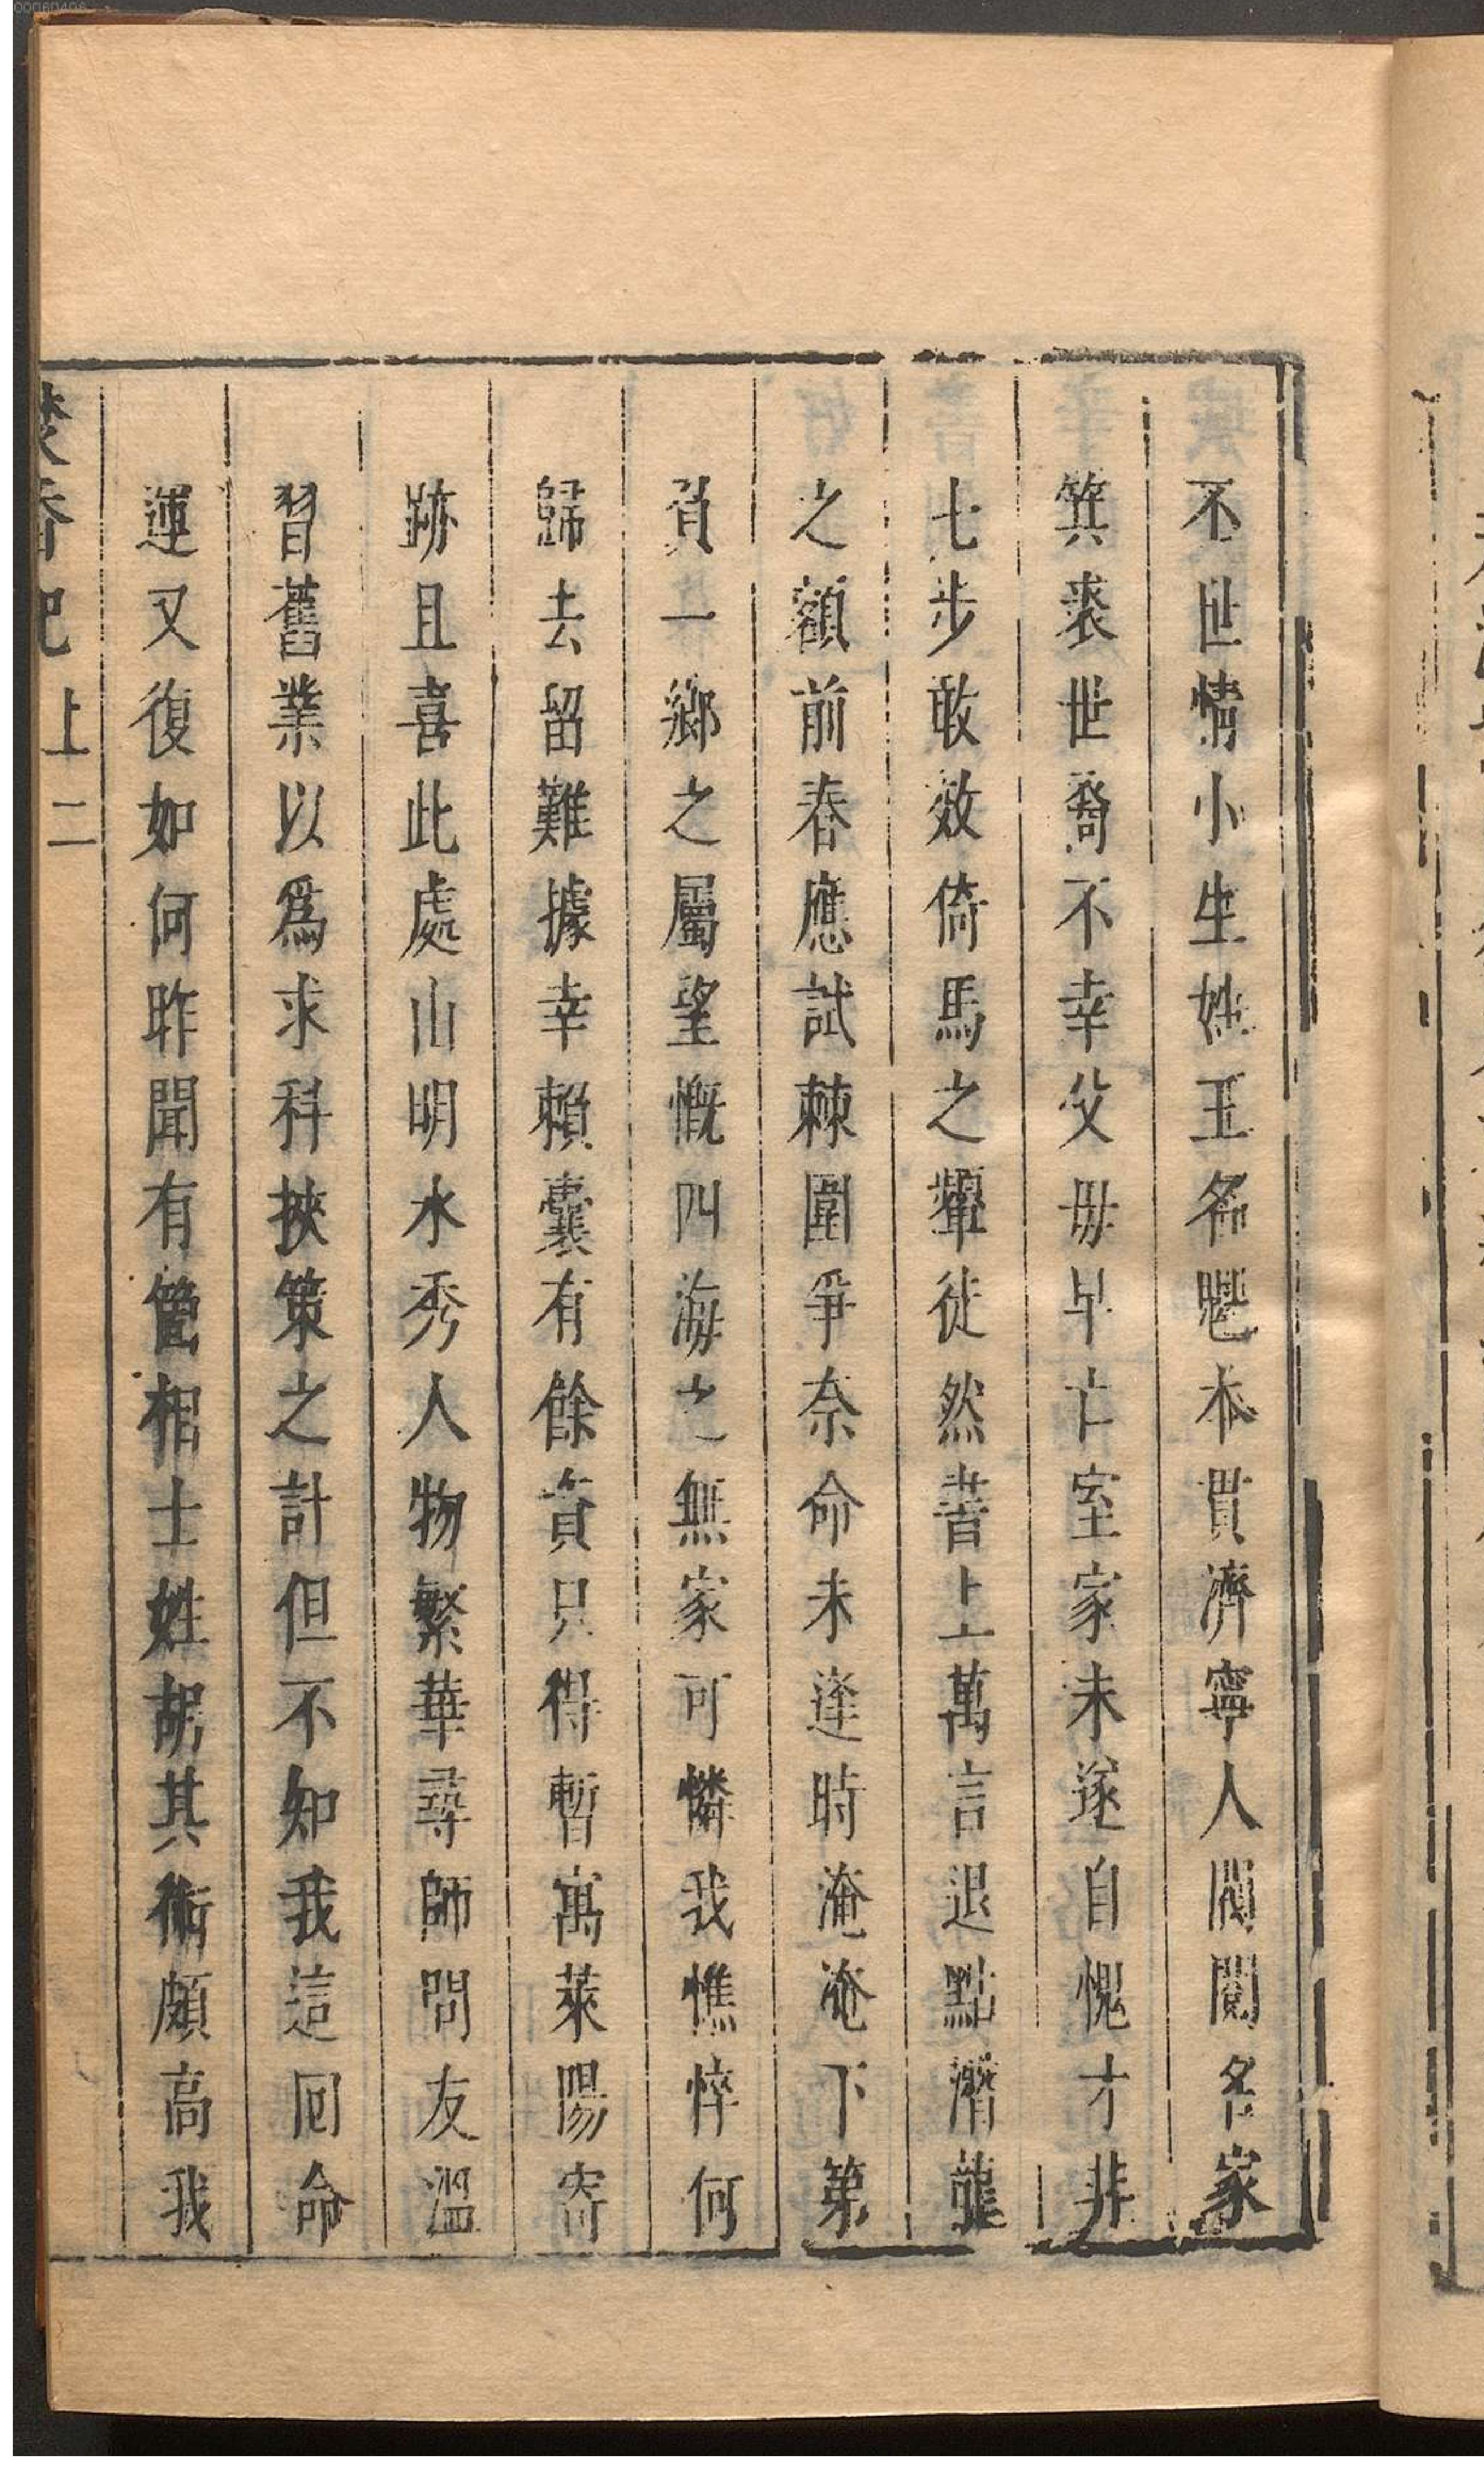 不世情小生姓王名魁本貫濟寧人閥閱名家
箕裘世裔不幸父母早亡室家未遂自愧才非
七步敢效倚馬之轝徒然書上萬言退點潛龍
之額前春應試棘圍爭奈命未逢時淹淹下第
負一鄉之屬望慨四海之無家可憐我憔悴何
歸去留難據幸賴囊有餘資只得暫寓萊陽寄
跡且喜此處山明水秀人物繁華尋師問友溫
習舊業以爲求科挾策之計但不知我這囘命
運又復如何昨聞有箇相士姓胡其術頗高我
焚香記 上 二
00060406